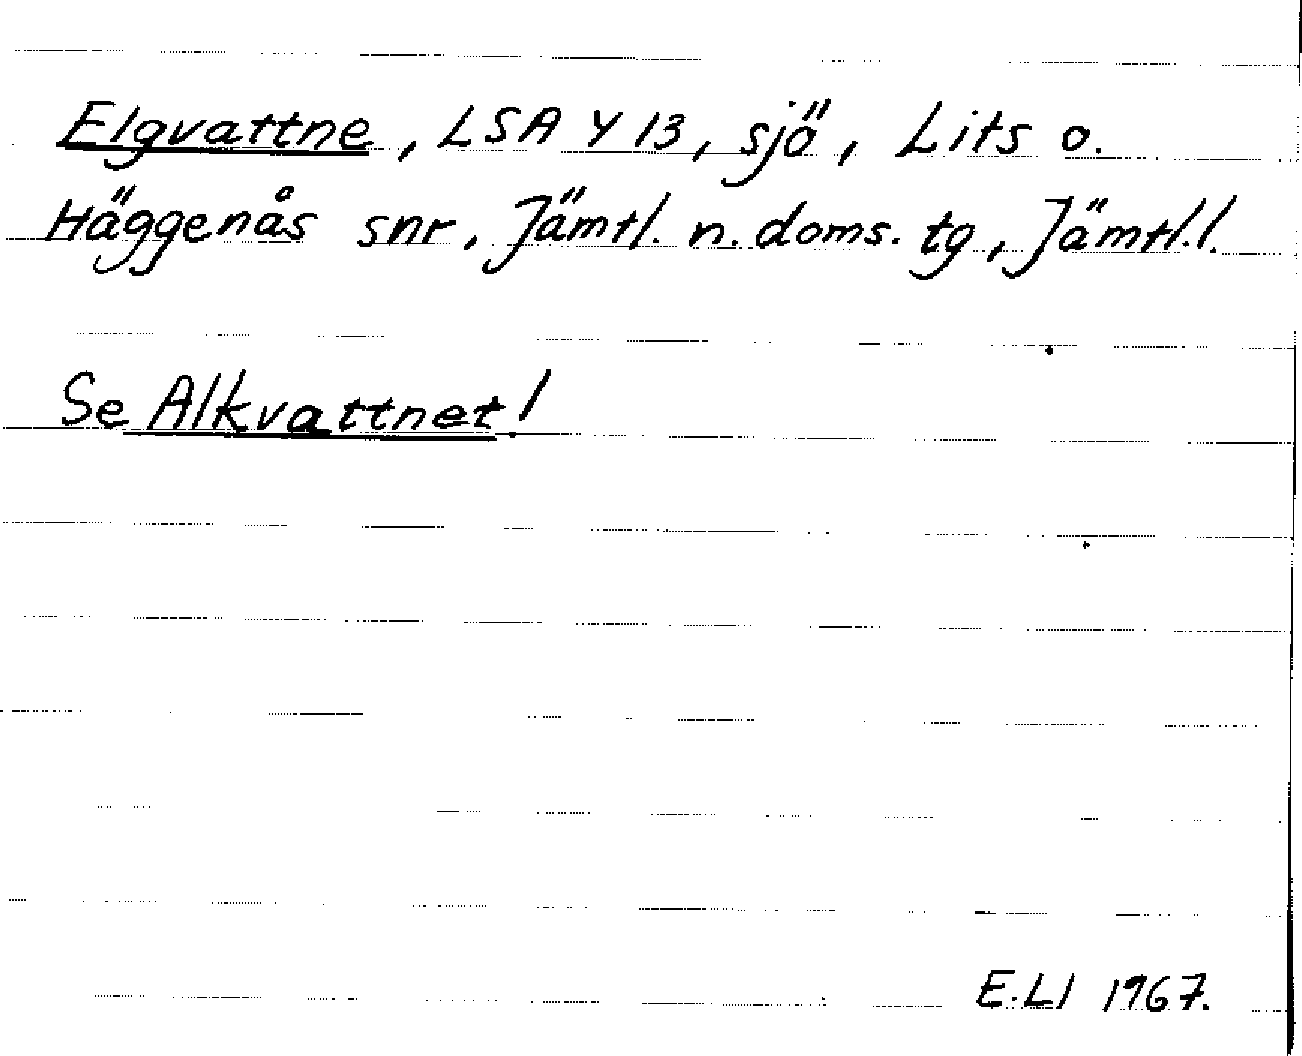 Elgvattne, LSA Y 13, sjö, Lits o.
Häggenås snr, Jämtl. n. doms. tg, Jämtl. l.
Se Alkvattnet!
E. Ll 1967.